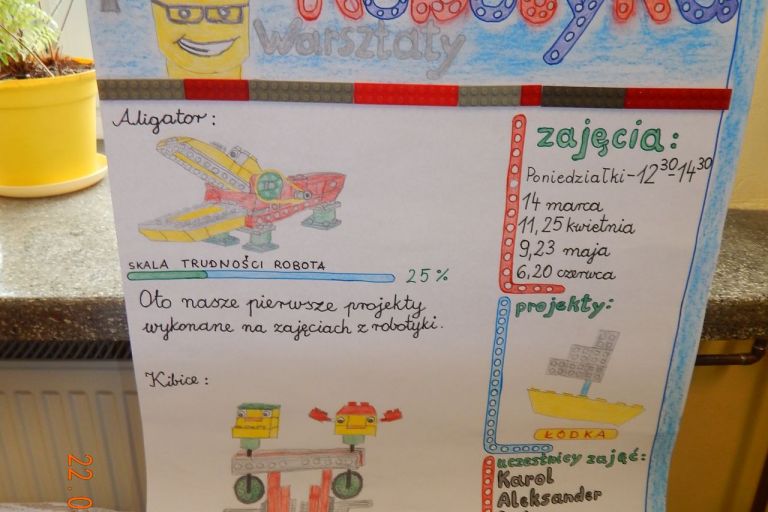 Robotyka
Warsztaty
Aligator:
SKALA TRUDNOŚCI ROBOTA
25%
Oto nasze pierwsze projekty
wykonane na zajęciach z robotyki.
Kibice:
zajęcia:
Poniedziałki-12³⁰-14³⁰
14 marca
11,25 kwietnia
9,23 maja
6,20 czerwca
projekty:
ŁÓDKA
uczestnicy zajęć:
Karol
Aleksander
22.0